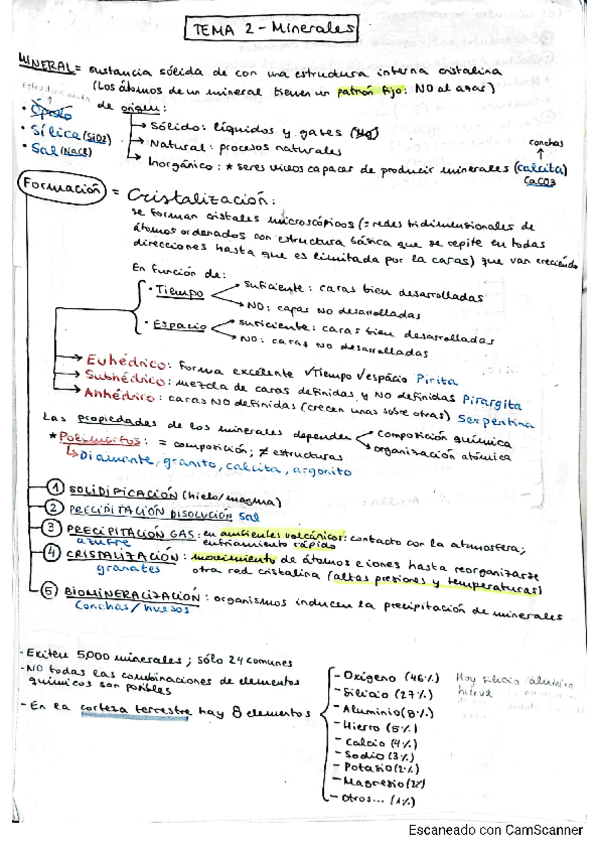 TEMA 2 - Minerales
MINERAL = sustancia sólida de con una estructura interna cristalina
(Los átomos de un mineral tienen un patrón fijo: NO al azar)
• Ópalo
de origen:
• Sílica (SiO2)
→ Sólido: líquidos y gases (Hg)
• Sal (NaCl)
→ Natural: procesos naturales
conchas
→ Inorgánico: * seres vivos capaces de producir minerales (calcita)
CaCO3
Formación = Cristalización:
se forman cristales microscópicos (= redes tridimensionales de
átomos ordenados con estructura básica que se repite en todas
direcciones hasta que es limitada por la caras) que van creciendo
En función de:
• Tiempo → suficiente: caras bien desarrolladas
→ NO: capas no desarrolladas
• Espacio → suficiente: caras bien desarrolladas
→ NO: caras no desarrolladas
→ Euhédrico: forma excelente √Tiempo √espacio Pirita
→ Subhédrico: mezcla de caras definidas y NO definidas Pirargita
→ Anhédrico: caras NO definidas (crecen unas sobre otras) Serpentina
Las propiedades de los minerales dependen → composición química
→ organización atómica
* Polimorfos: = composición; ≠ estructuras
↳ Diamante, granito, calcita, argonito
① SOLIDIFICACIÓN (hielo/magma)
② PRECIPITACIÓN DISOLUCIÓN sal
③ PRECIPITACIÓN GAS: en ambientes volcánicos: contacto con la atmosfera;
azufre enfriamiento rápido
④ CRISTALIZACIÓN: movimiento de átomos e iones hasta reorganizarse
granates otra red cristalina (altas presiones y temperaturas)
⑤ BIOMINERALIZACIÓN: organismos inducen la precipitación de minerales
Conchas/huesos
- Exiten 5,000 minerales; sólo 24 comunes
- NO todas las combinaciones de elementos
químicos son posibles
- En la corteza terrestre hay 8 elementos
- Oxígeno (46%)
Hoy silicio aluminico
- Silicio (27%)
hierva
- Aluminio (8%)
- Hierro (5%)
- Calcio (4%)
- Sodio (3%)
- Potasio (2%)
- Magnesio (2%)
- Otros... (1%)
Escaneado con CamScanner